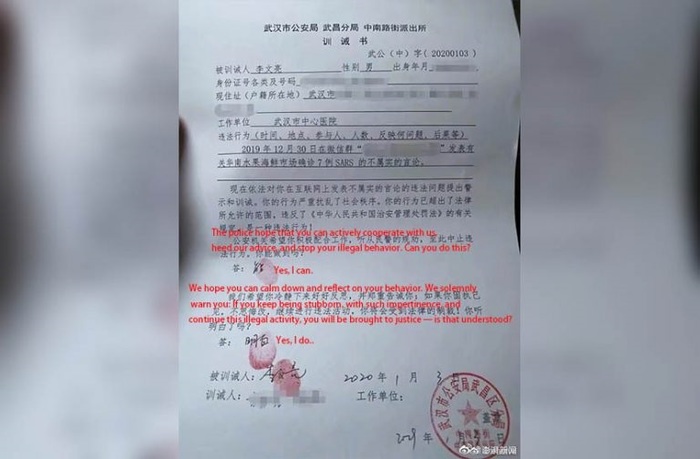 武汉市公安局 武昌分局 中南路街派出所
训 诫 书
武公(中)字(20200103)
被训诫人 李文亮 性别 男 出身年月
身份证号各类及号码
现住址(户籍所在地) 武汉市
工作单位 武汉市中心医院
违法行为(时间、地点、参与人、人数、反映何问题、后果等)
2019年12月30日在微信群“ ”发表有
关华南水果海鲜市场确诊7例SARS的不属实的言论。
现在依法对你在互联网上发表不属实的言论的违法问题提出警
示和训诫。你的行为严重扰乱了社会秩序。你的行为已超出了法律
所允许的范围，违反了《中华人民共和国治安管理处罚法》的有关
规定，是一种违法行为！
The police hope that you can actively cooperate with us,
公安机关希望你积极配合工作，听从民警的规劝，至此中止违
heed our advice, and stop your illegal behavior. Can you do this?
法行为。你能做到吗？
答：能
Yes, I can.
We hope you can calm down and reflect on your behavior. We solemnly
我们希望你冷静下来好好反思，并郑重告诫你：如果你固执己
warn you: If you keep being stubborn, with such impertinence, and
见，不思悔改，继续进行违法活动，你将会受到法律的制裁！你听
continue this illegal activity, you will be brought to justice — is that understood?
明白了吗？
答：明白
Yes, I do..
被训诫人：李文亮 2020 年 1 月 3 日
训诫人： 工作单位：
武汉市公安局武昌区
年 月 日
@澎湃新闻